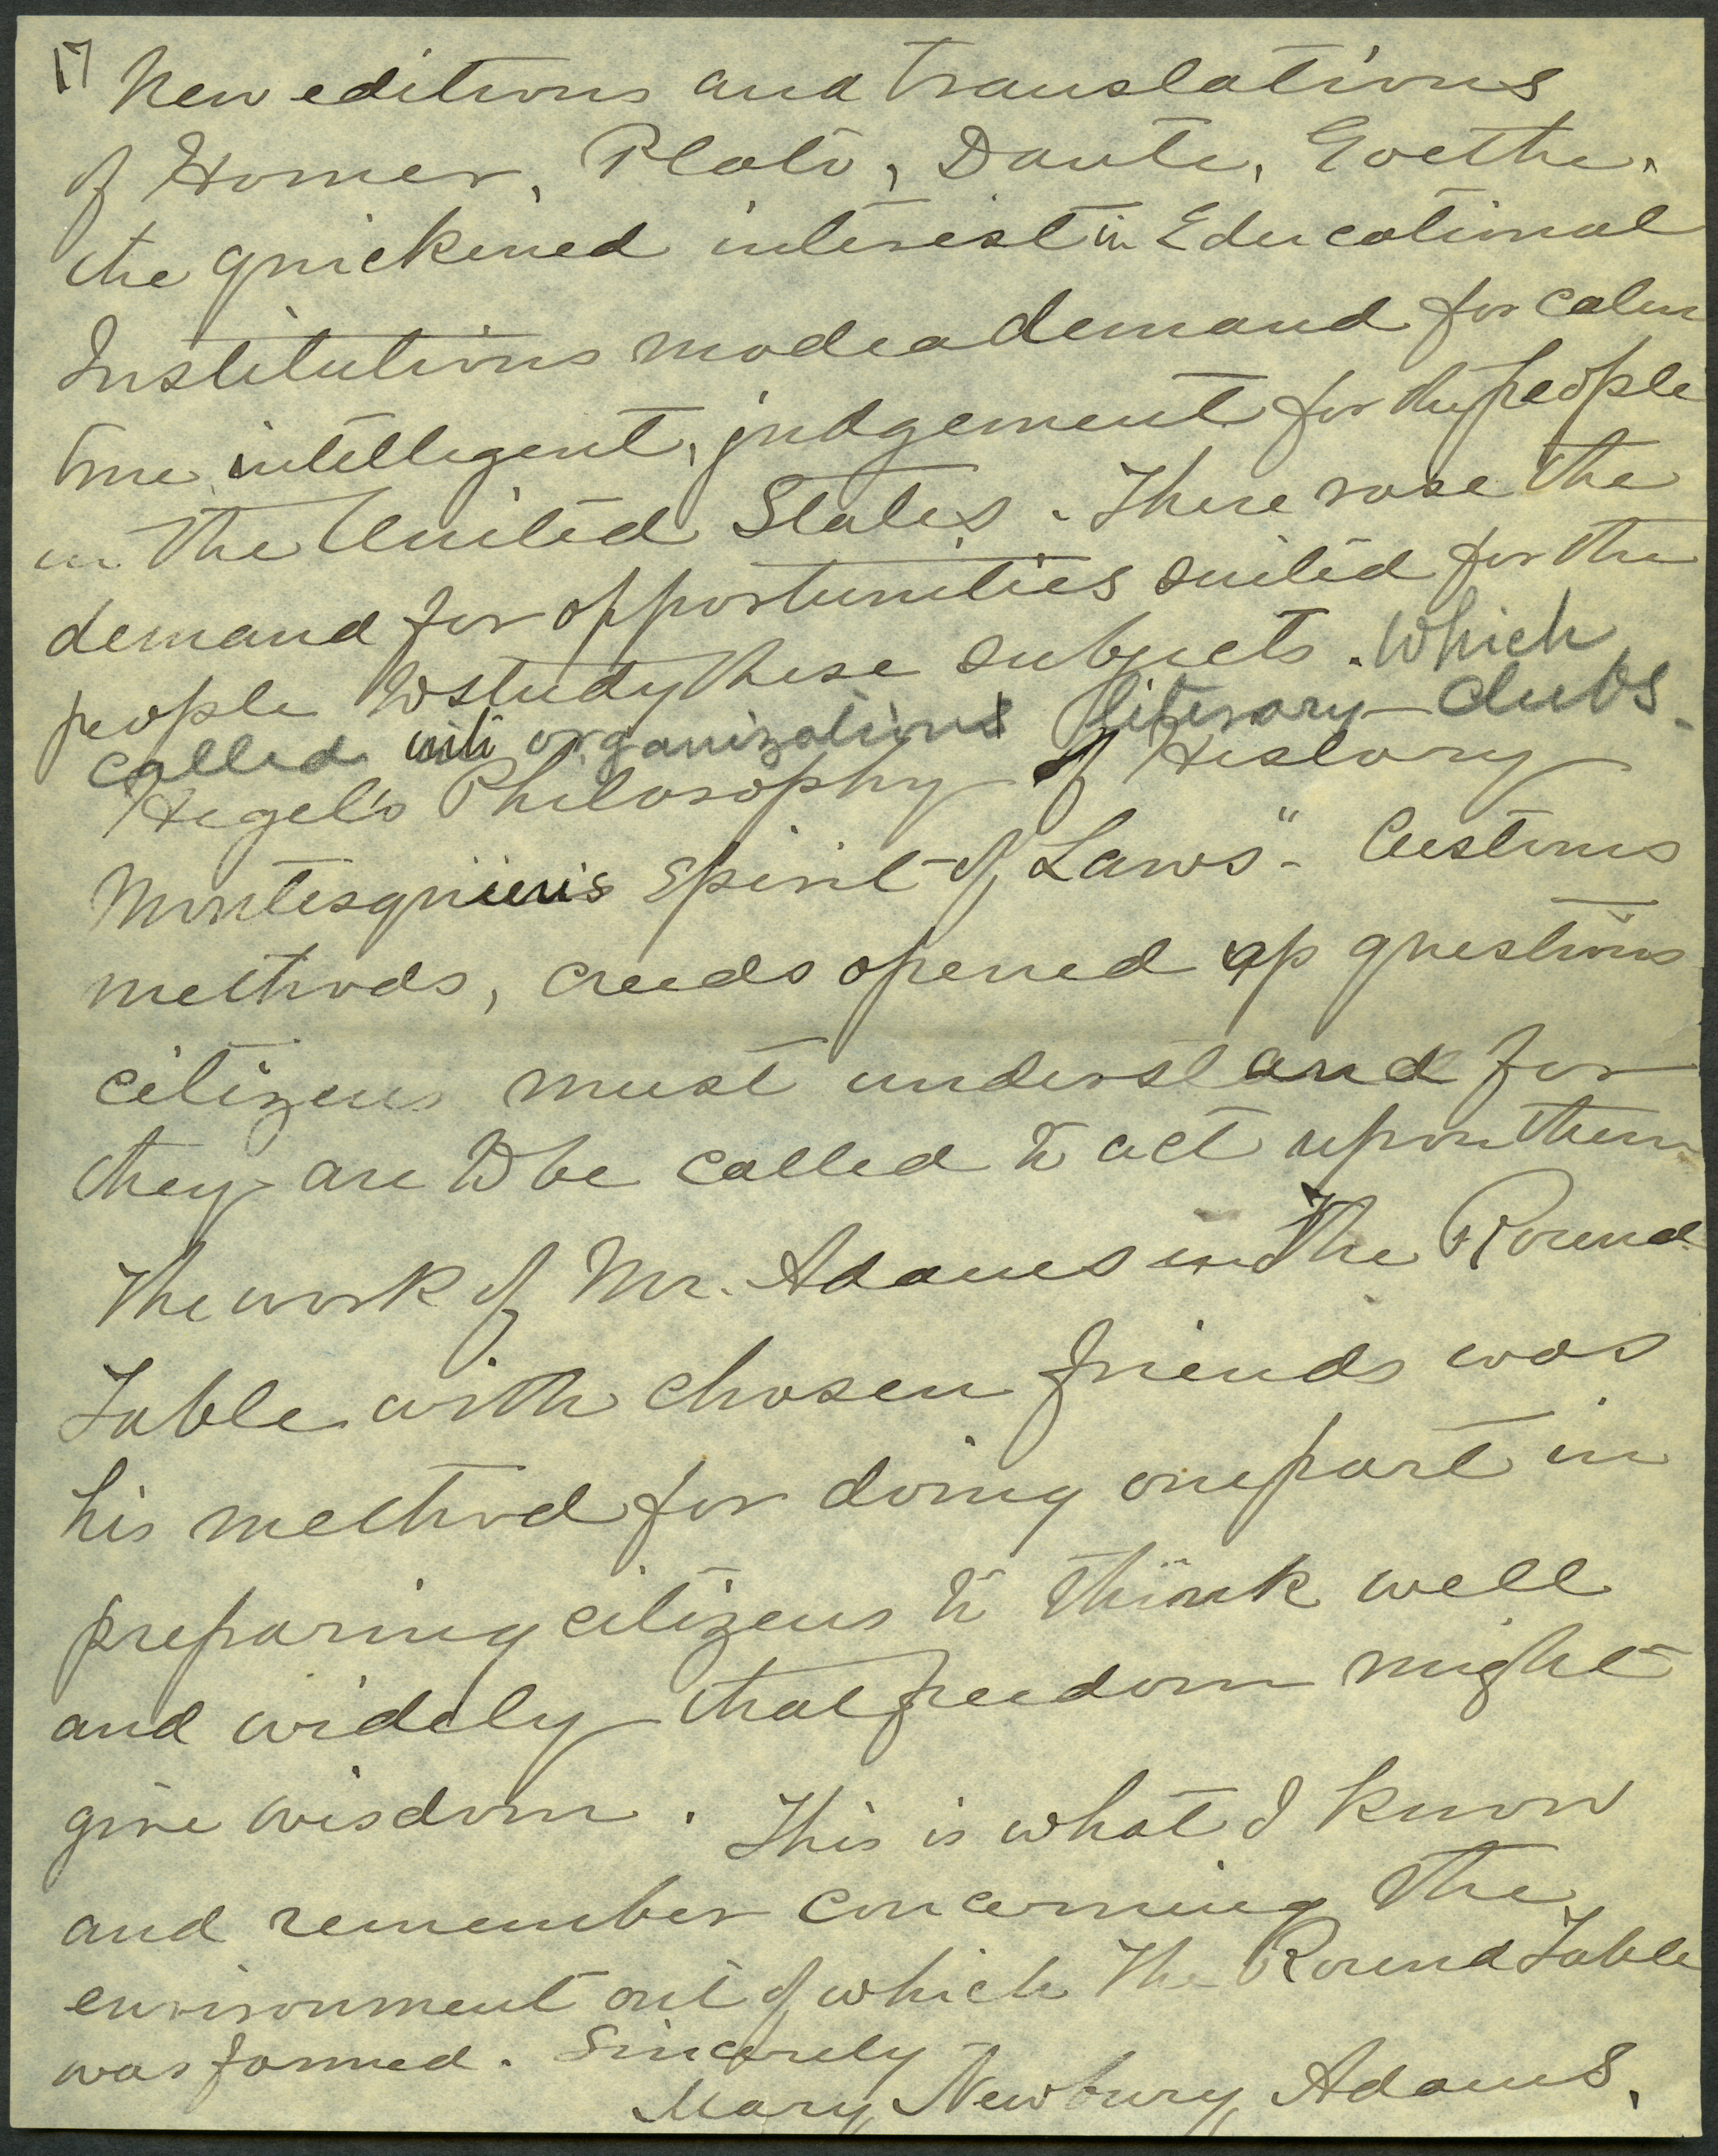 17
New editions and translations
of Homer, Plato, Dante, Goethe,
the quickened interest in Educational
Institutions made a demand for calm
true intelligent, judgement for the people
in the United States. There rose the
demand for opportunities suited for the
people to study these subjects. Which
called into organizations literary clubs.
Hegel's Philosophy of History
Montesquieu's Spirit of Laws" - Customs
methods, creeds opened up questions
citizens must understand for
they are to be called to act upon them
The work of Mr. Adams in The Round
Table with chosen friends was
his method for doing one part in
preparing citizens to think well
and widely that freedom might
give wisdom. This is what I know
and remember concerning the
environment out of which The Round Table
was formed. Sincerely
Mary Newbury Adams.